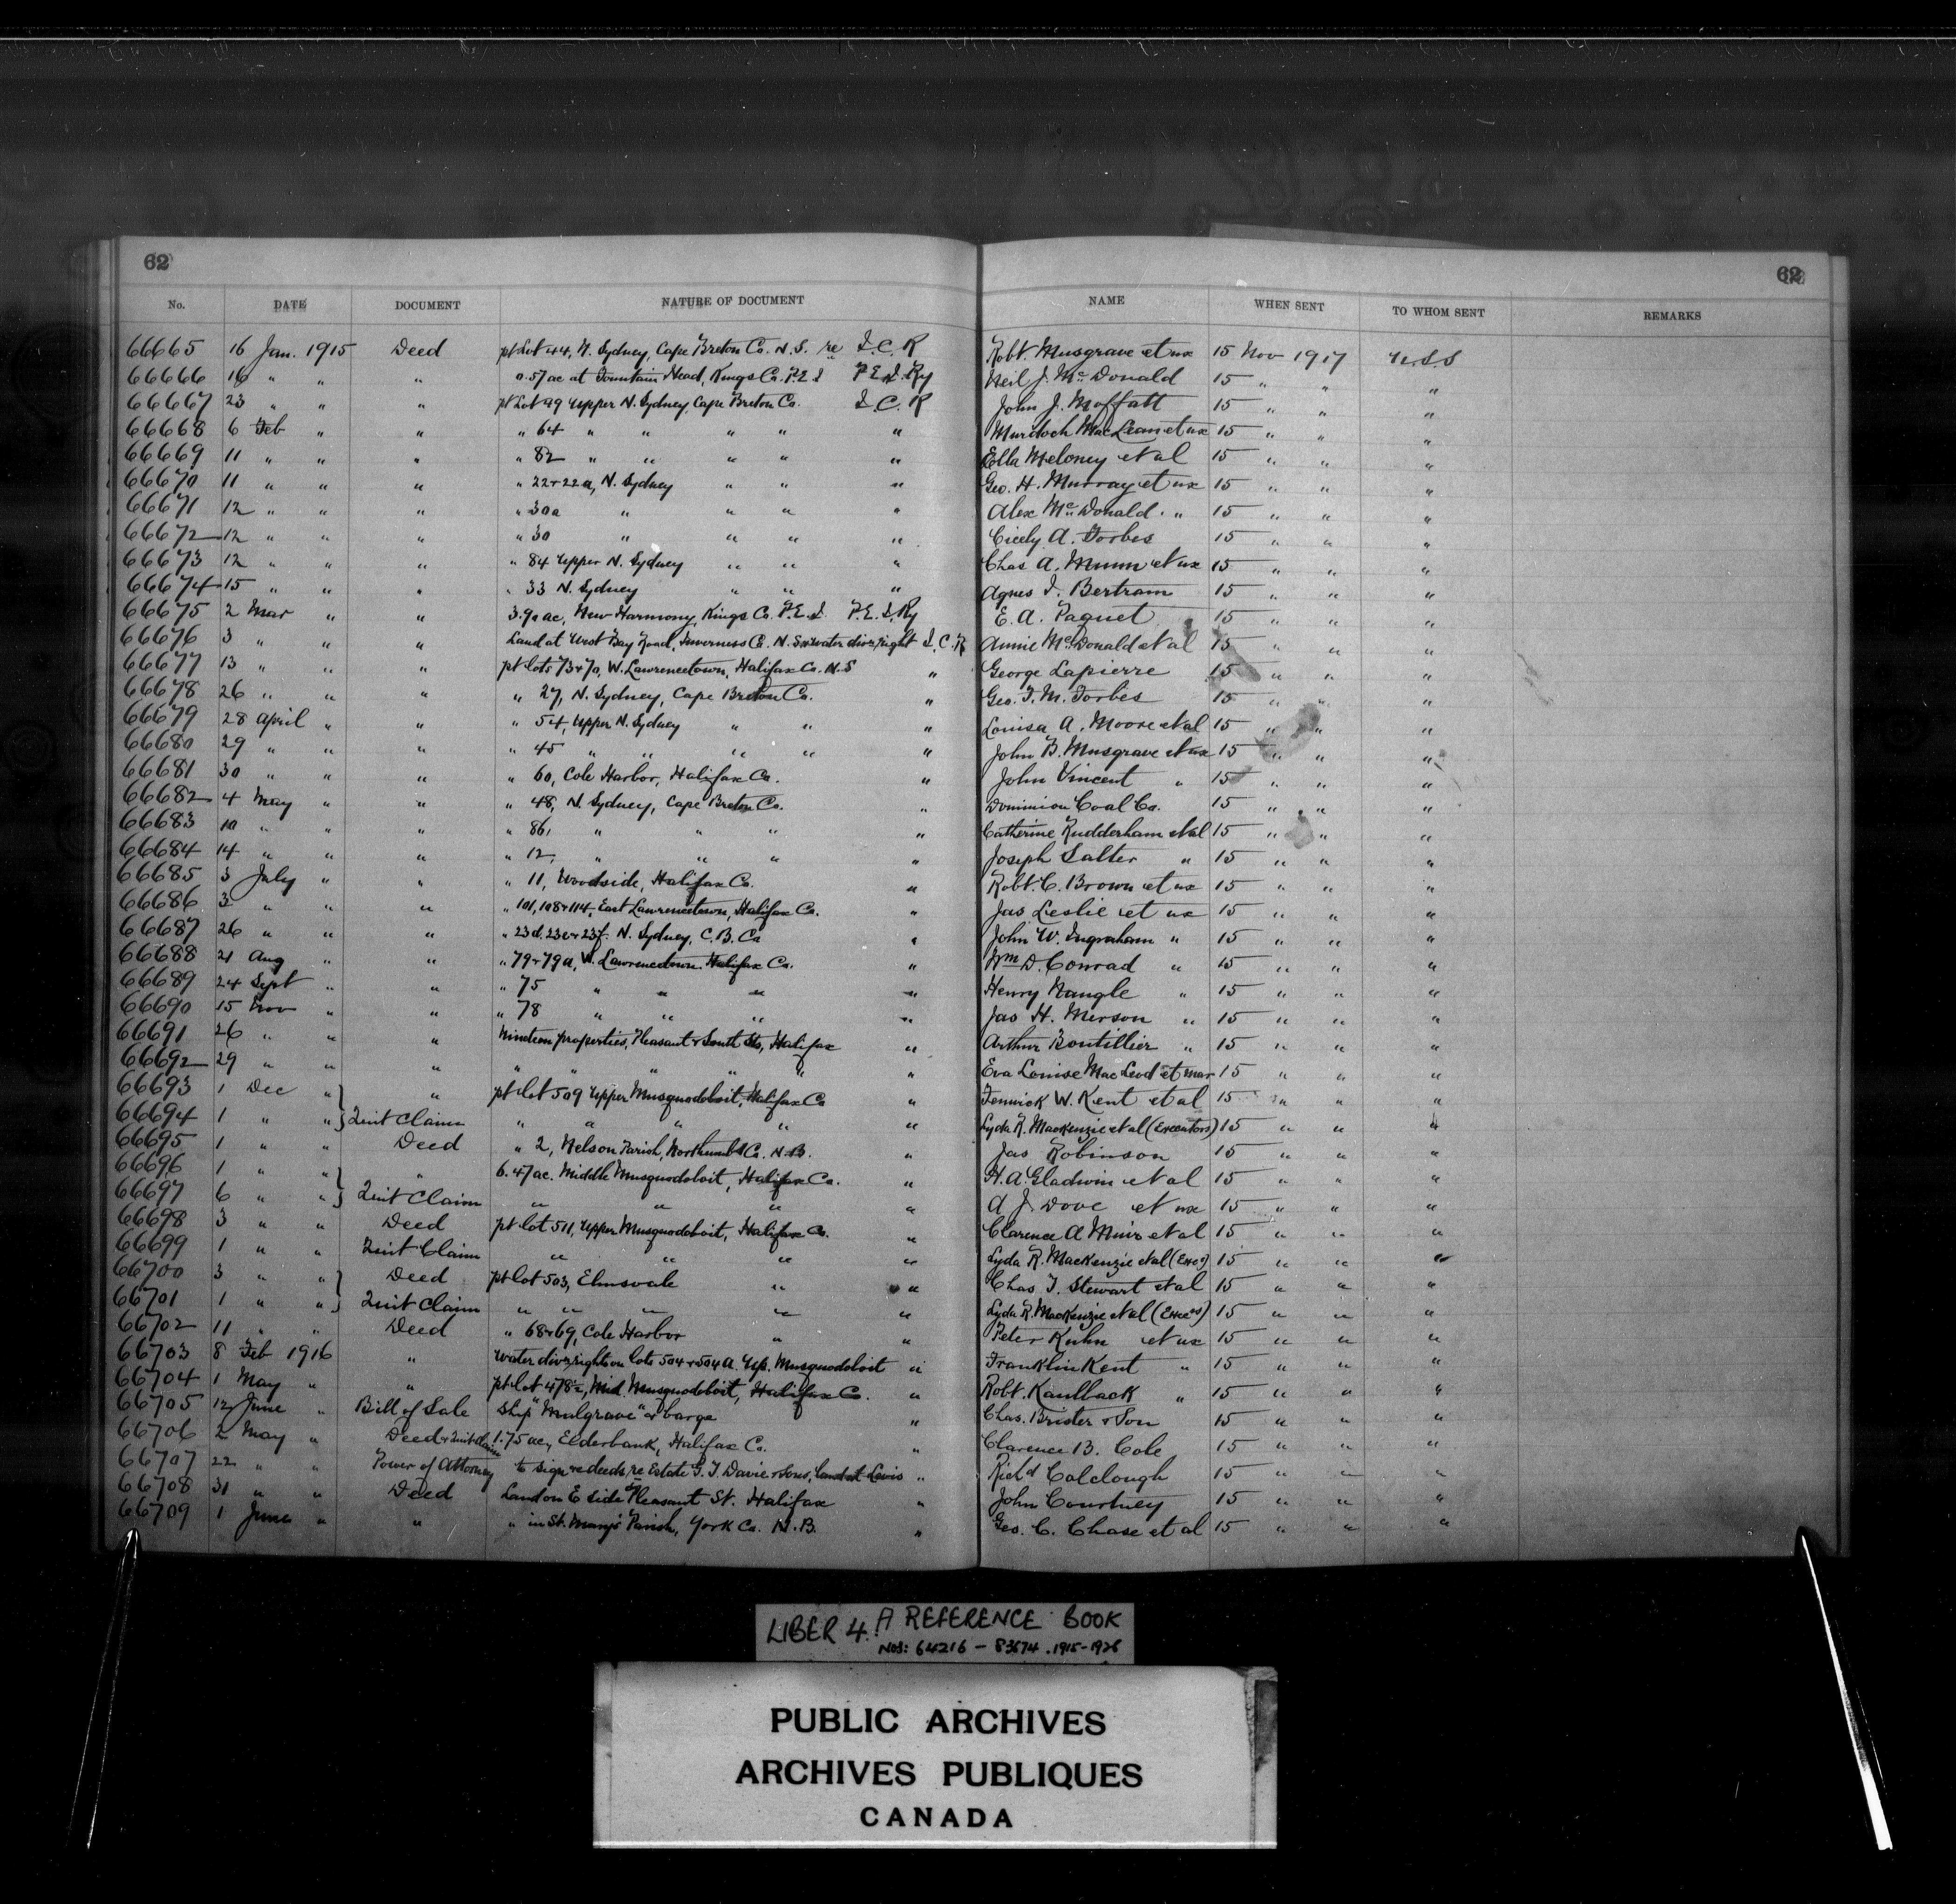 62 62
No. DATE DOCUMENT NATURE OF DOCUMENT NAME WHEN SENT TO WHOM SENT REMARKS
66665 16 Jan. 1915 Deed pt Lot 44, N. Sydney, Cape Breton Co. N. S. re I. C. R Robt. Musgrave et ux 15 Nov 1917
66666 16 " " " 0.57 ac at Fountain Head, Kings Co. P.E.I P.E.I. Ry Neil J. McDonald 15 " " "
66667 23 " " " pt Lot 99 Upper N. Sydney, Cape Breton Co. I. C. R John J. Moffatt 15 " " "
66668 6 Feb " " " 64 " " " " " Murdoch MacLean et ux 15 " " "
66669 11 " " " " 82 " " " " " Ella Meloney et al 15 " " "
66670 11 " " " " 22+22a, N. Sydney " " " Geo. H. Murray et ux 15 " " "
66671 12 " " " " 30a " " " " Alex McDonald " 15 " " "
66672 12 " " " " 30 " " " " Cicely A. Forbes 15 " " "
66673 12 " " " " 84 Upper N. Sydney " " " Chas A. Munn et ux 15 " " "
66674 15 " " " " 33 N. Sydney " " " Agnes I. Bertram 15 " " "
66675 2 Mar " " 3.90 ac, New Harmony, Kings Co. P.E.I. P.E.I. Ry E. A. Paquet 15 " " "
66676 3 " " " Land at West Bay Road, Inverness Co. N. S. + water div. right I. C. R Annie McDonald et al 15 " " "
66677 13 " " " pt lots 73+70, W. Lawrencetown, Halifax Co. N.S " George Lapierre 15 " " "
66678 26 " " " " 27, N. Sydney, Cape Breton Co. " Geo. F. M. Forbes 15 " " "
66679 28 April " " " 54, Upper N. Sydney " " " Louisa A. Moore et al 15 " " "
66680 29 " " " " 45 " " " " " John B. Musgrave et ux 15 " " "
66681 30 " " " " 60, Cole Harbor, Halifax Co. " John Vincent " 15 " " "
66682 4 May " " " 48, N. Sydney, Cape Breton Co. " Dominion Coal Co. 15 " " "
66683 10 " " " " 86, " " " " Catherine Rudderham et al 15 " " "
66684 14 " " " " 12, " " " " Joseph Salter " 15 " " "
66685 3 July " " " 11, Woodside, Halifax Co. " Robt. C. Brown et ux 15 " " "
66686 3 " " " " 101, 108+114, East Lawrencetown, Halifax Co. " Jas Leslie et ux 15 " " "
66687 26 " " " " 23d. 23e+23f. N. Sydney, C. B. Co " John W. Ingraham " 15 " " "
66688 21 Aug " " " 79+79a, W. Lawrencetown. Halifax Co. " Wm D. Conrad " 15 " " "
66689 24 Sept " " " 75 " " " " Henry Nangle " 15 " " "
66690 15 Nov " " " 78 " " " " Jas H. Merson " 15 " " "
66691 26 " " " Nineteen properties, Pleasant + South Sts, Halifax " Arthur Boutillier " 15 " " "
66692 29 " " " " " " " " " Eva Louise MacLeod et mar 15 " " "
66693 1 Dec " " pt lot 509 Upper Musquodoboit, Halifax Co " Fenwick W. Kent et al 15 " " "
66694 1 " " Quit Claim " " " " " Lyda R. MacKenzie et al (Executors) 15 " " "
66695 1 " " Deed " 2, Nelson Parish, Northumb'd Co. N.B. " Jas Robinson 15 " " "
66696 1 " " " 6.47 ac. Middle Musquodoboit, Halifax Co. " H. A. Gladwin et al 15 " " "
66697 6 " " Quit Claim " " " " A J. Dove et ux 15 " " "
66698 3 " " Deed pt lot 511, Upper Musquodoboit, Halifax Co. " Clarence A Muir et al 15 " " "
66699 1 " " Quit Claim " " " " Lyda R. MacKenzie et al (Exrs) 15 " " "
66700 3 " " Deed pt lot 503, Elmsvale " " Chas. T. Stewart et al 15 " " "
66701 1 " " Quit Claim " " " " " Lyda R. MacKenzie et al 15 " " "
66702 11 " " Deed " 68+69, Cole Harbor " " Peter Kuhn et ux 15 " " "
66703 8 Feb 1916 " Water div. rights on lots 504+504A. Up. Musquodoboit " Franklin Kent " 15 " " "
66704 1 May " " pt lot 478½, Mid. Musquodoboit, Halifax Co. " Robt. Kaulback " 15 " " "
66705 12 June " Bill of Sale Ship "Mulgrave" or barge " Chas. Brister + Son 15 " " "
66706 2 May " Deed + Quit Claim 1.75 ac, Elderbank, Halifax Co. " Clarence B. Cole 15 " " "
66707 22 " " Power of Attorney to sign deeds, re Estate G. T. Davie + Sons, land at Levis " Richd Colclough 15 " " "
66708 31 " " Deed Land on E side Pleasant St. Halifax " John Courtney 15 " " "
66709 1 June " " " in St. Mary's Parish, York Co. N.B. " Geo. C. Chase et al 15 " " "
LIBER 4. A REFERENCE BOOK
NOS: 64216 - 83674. 1915-1926
PUBLIC ARCHIVES
ARCHIVES PUBLIQUES
CANADA